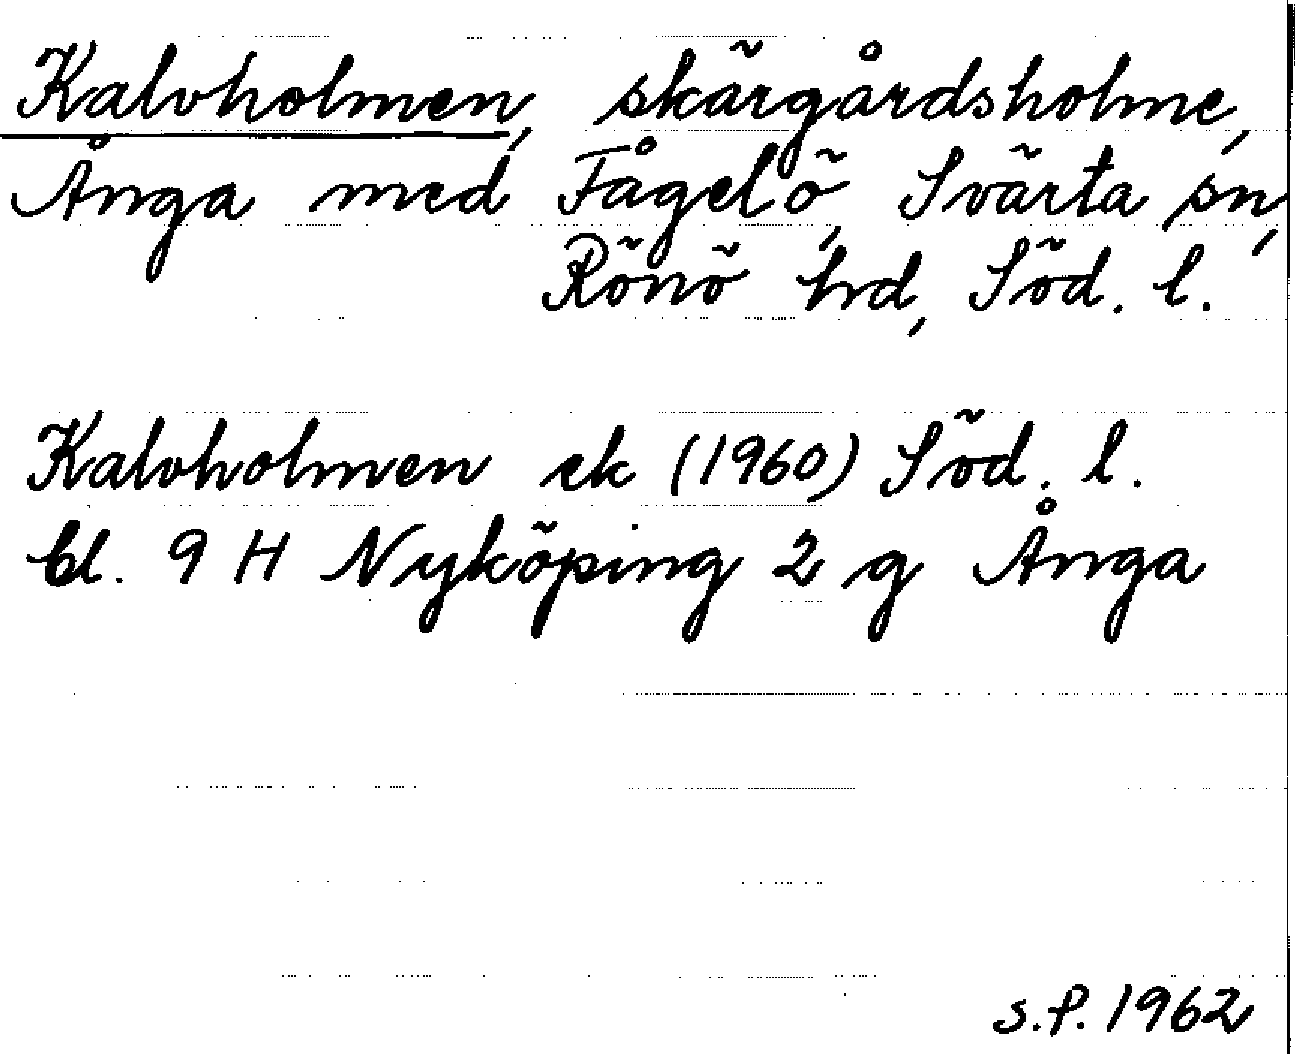 Kalvholmen, skärgårdsholme,
Ånga med Fågelö, Svärta sn,
Rönö hrd, Söd. l.
Kalvholmen ek (1960) Söd. l.
bl. 9 H Nyköping 2 g Ånga
s.f. 1962